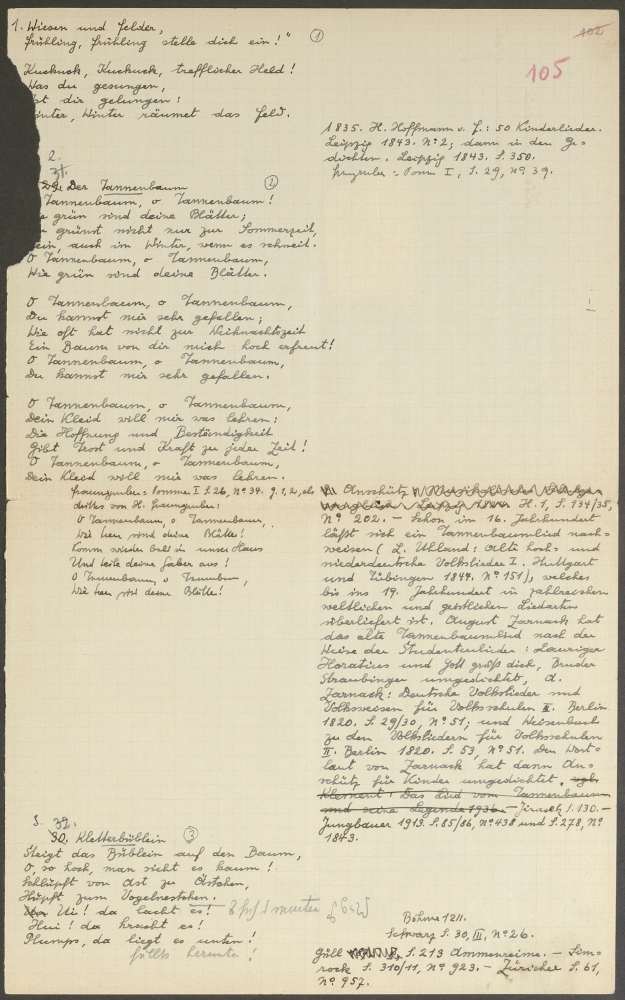 1. Wiesen und Felder,
Frühling, Frühling stelle dich ein!" ①
Kuckuck, Kuckuck, trefflicher Held!
Was du gesungen,
st dir gelungen:
inter, Winter räumet das Feld.
102
105
1835. H. Hoffmann v. F.: 50 Kinderlieder.
Leipzig 1843. Nº 2; dann in den Ge-
dichten. Leipzig 1843. S. 350.
Franzgruber = Pomm I, S. 29, Nº 39.
2.
31.
Der Tannenbaum ②
Tannenbaum, o Tannenbaum!
e grün sind deine Blätter;
u grünst nicht nur zur Sommerzeit,
ein, auch im Winter, wenn es schneit.
O Tannenbaum, o Tannenbaum,
Wie grün sind deine Blätter.
O Tannenbaum, o Tannenbaum,
Du kannst mir sehr gefallen;
Wie oft hat nicht zur Weihnachtszeit
Ein Baum von dir mich hoch erfreut!
O Tannenbaum, o Tannenbaum,
Du kannst mir sehr gefallen.
O Tannenbaum, o Tannenbaum,
Dein Kleid will mir was lehren:
Die Hoffnung und Beständigkeit
Gibt Trost und Kraft zu jeder Zeit!
O Tannenbaum, o Tannenbaum,
Dein Kleid will mir was lehren.
S. 26, Nº 34. G. 1, 2, als
drittes von H.
O Tannenbaum, o Tannenbaum,
Wie grün sind deine Blätter!
Komm wieder bald in unser Haus
Und teile deine Gaben aus!
O Tannenbaum, o Tannenbaum,
Wie grün sind deine Blätter!
Anschütz H. 1, S. 134/35,
Nº 202. – Schon im 16. Jahrhundert
läßt sich ein Tannenbaumlied nach-
weisen (L. Uhland: Alte hoch- und
niederdeutsche Volkslieder I. Stuttgart
und Tübingen 1844. Nº 151), welches
bis ins 19. Jahrhundert in zahlreichen
weltlichen und geistlichen Liedarten
überliefert ist. August Zarnack hat
das alte Tannenbaumlied nach der
Weise der Studentenlieder: Lauriger
Horatius und Gott grüß dich, Bruder
Straubinger umgedichtet, A.
Zarnack: Deutsche Volkslieder mit
Volksweisen für Volksschulen II. Berlin
1820. S. 29/30, Nº 51; und Weisenbuch
zu den Volksliedern für Volksschulen
II. Berlin 1820. S. 53, Nº 51. Den Wort-
laut von Zarnack hat dann An-
schütz für Kinder umgedichtet. vgl.
Klement: Das Lied vom Tannenbaum
und seine Legende 1936. – Jirasek S. 130. –
Jungbauer 1913. S. 85/86, Nº 438 und S. 278, Nº
1843.
3. 32.
30. Kletterbüblein ③
Steigt das Büblein auf den Baum,
O, so hoch, man sieht es kaum!
Schlüpft von Ast zu Ästchen,
Hüpft zum Vogelnestchen.
Ui! da lacht es!
Hui! da kracht es!
Plumps, da liegt es unten!
Böhme 1211.
Schwarz S. 30, III, Nº 26.
Güll S. 213 Ammenreime. – Sim-
rock S. 310/11, Nº 923. – Züricher S. 61,
Nº 957.